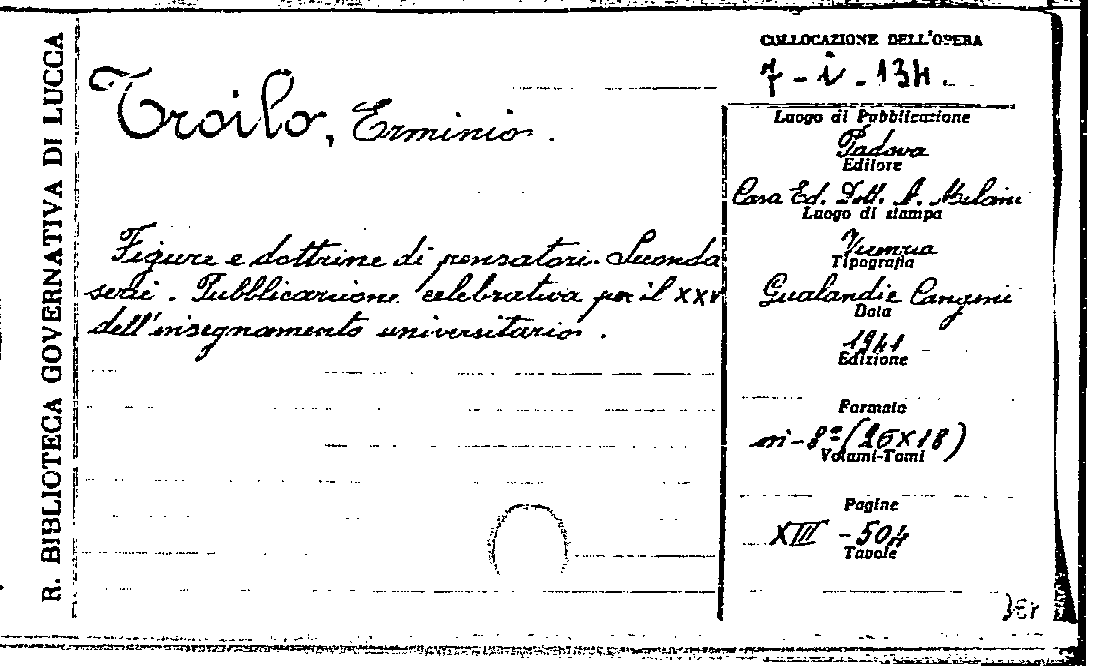 R. BIBLIOTECA GOVERNATIVA DI LUCCA
Troilo, Erminio.
Figure e dottrine di pensatori. Seconda
serie. Pubblicazione celebrativa per il XXV
dell'insegnamento universitario.
COLLOCAZIONE DELL'OPERA
7 - i - 134.
Luogo di Pubblicazione
Padova
Editore
Casa Ed. Dott. A. Milani
Luogo di stampa
Tipografia
Gualandi e
Data
1941
Edizione
Formato
in-8º (26x18)
Volumi-Tomi
Pagine
XIII - 504
Tavole